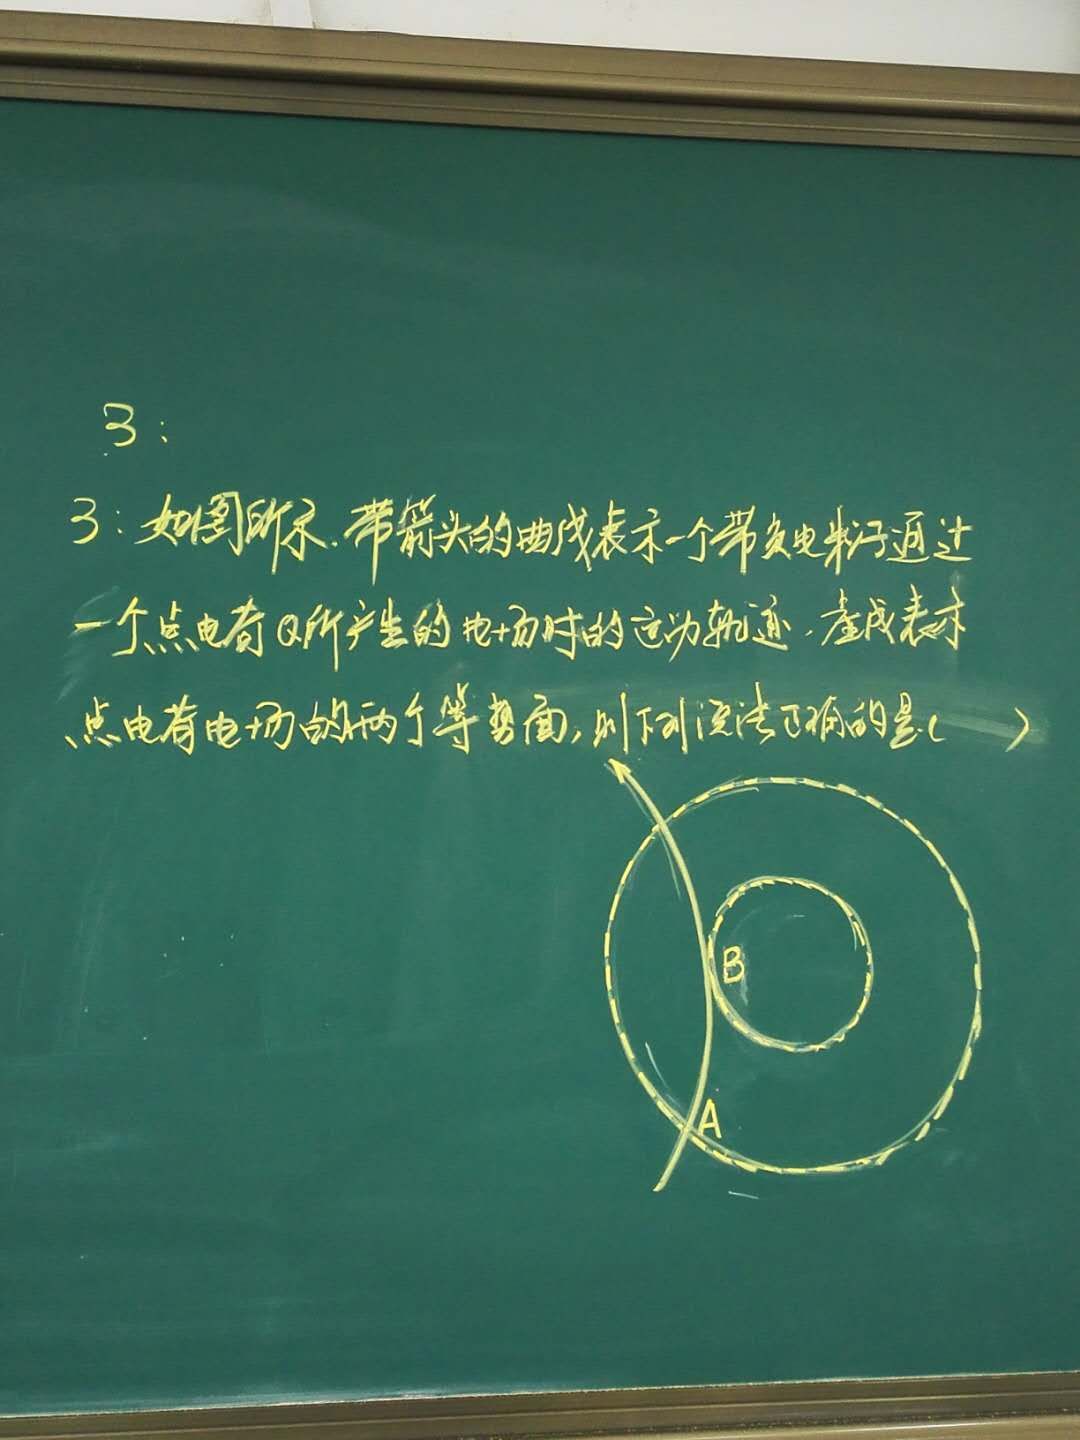 3:
3:如图所示.带箭头的曲线表示一个带负电粒子通过
一个点电荷Q所产生的电场时的运动轨迹,虚线表示
点电荷电场的两个等势面,则下列说法正确的是( )
B
A